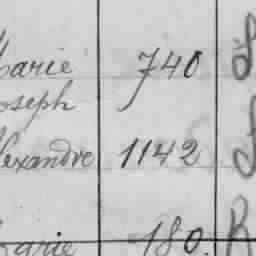 Marie 740
Joseph
Alexandre 1142
Marie 180.